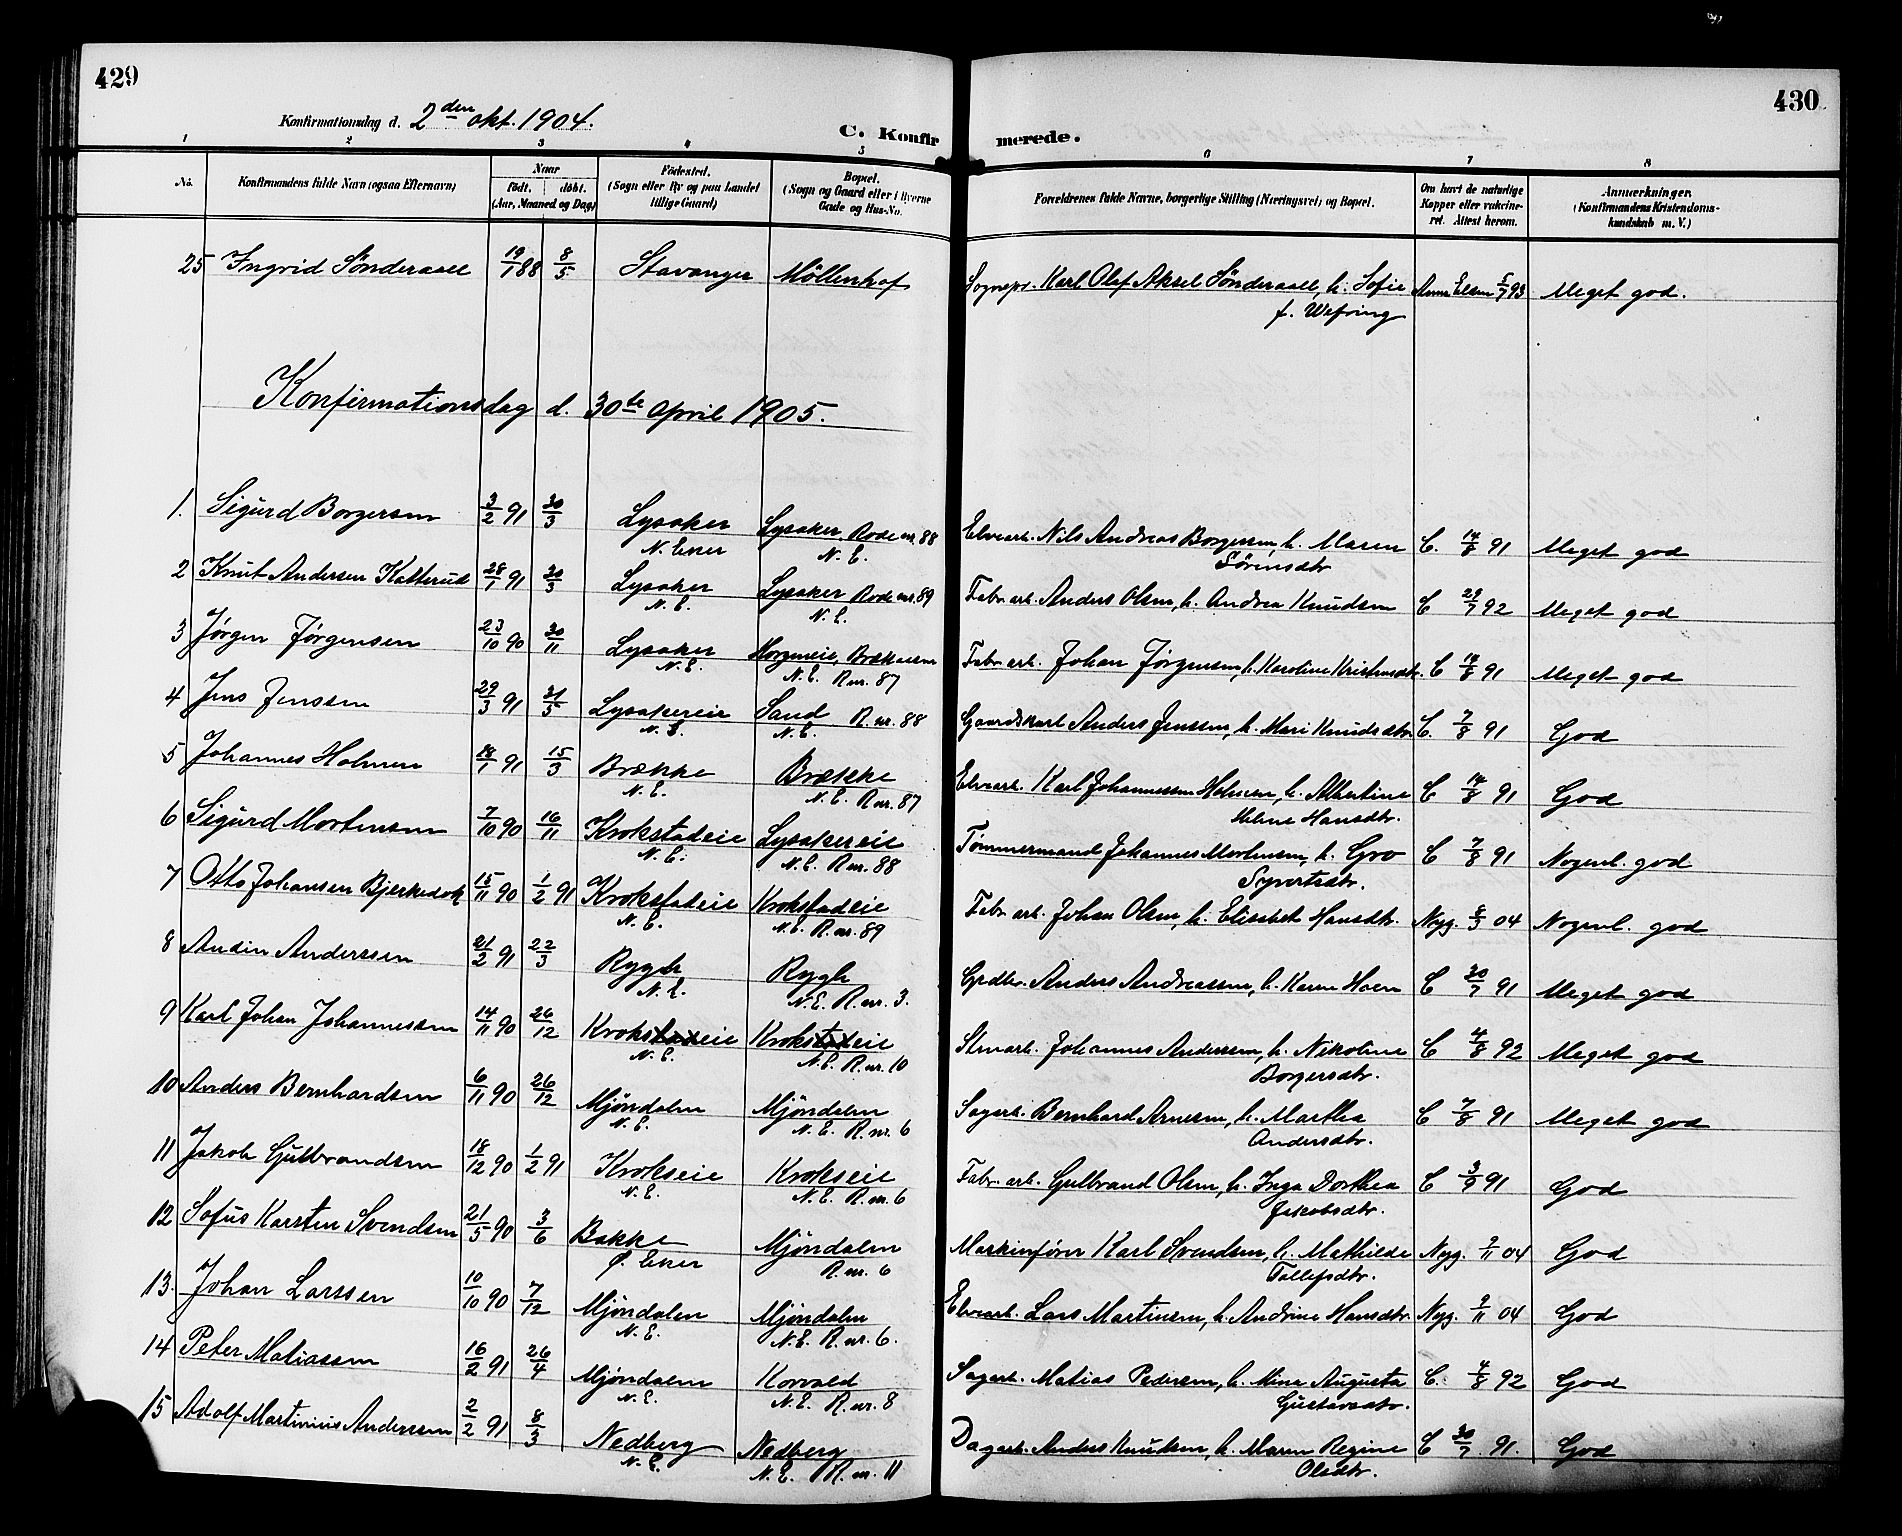 429
430
Konfirmationsdag d. 2den okt. 1904.
C. Konfirmerede.
1 2 3 4 5 6 7 8
No.
Konfirmandens fulde Navn (ogsaa Efternavn)
Naar
født. døbt.
(Aar, Maaned og Dag)
Fødested.
(Sogn eller By og paa Landet
tillige Gaard)
Bopæl.
(Sogn og Gaard eller i Byerne
Gade og Hus-No.
Forældrenes fulde Navne, borgerlige Stilling (Næringsvei) og Bopæl.
Om havt de naturlige
Kopper eller vakcine-
ret. Attest herom.
Anmærkninger.
(Konfirmandens Kristendoms-
kundskab m. V.)
25 Ingrid Sønderaall 19/1 88 8/5 Stavanger Møllenhof Sognepr. Karl Olaf Aksel Sønderaall, h. Sofie Anna Elsen 5/7 93 Meget god.
f. Wefring
Konfirmationsdag d. 30te april 1905.
1. Sigurd Borgersen 3/2 91 30/3 Lysaker Lysaker, Rode nr. 88 Elvearb. Nils Andreas Borgersen, h. Maren C. 14/8 91 Meget god
N. Eker N. E. Sørensdtr
2 Knut Andersen Katterud 28/1 91 30/3 Lysaker Lysaker Rode nr. 89 Fabr. arb. Anders Olsen, h. Andrea Knudsen C 29/7 92 Meget god
N. E. N. E.
3 Jørgen Jørgensen 23/10 90 30/11 Lysaker Horgeneie, Brækkeeie Fabr. arb. Johan Jørgensen, h. Karoline Kristensdtr. C 14/8 91 Meget god
N. E. N. E. R nr. 87
4 Jens Jenssen 29/3 91 31/5 Lysakereie Sand R. nr. 88 Gaardskarl Anders Jenssen, h. Mari Knudsdtr. C. 7/8 91 God
N. E. N. E.
5 Johannes Holmen 18/1 91 15/3 Brække Brække Elvearb. Karl Johannessen Holmen, h. Albertine C 14/8 91 God
N. E. N. E. R nr. 87 Helene Hansdtr.
6 Sigurd Mortensen 7/10 90 16/11 Krokstadeie Lysakereie Tømmermand Johannes Mortensen, h. Gro C 7/8 91 Nogenl. god
N. E. N. E. R nr. 88 Syvertsdtr.
7 Otto Johansen Bjerkedok 15/11 90 1/2 91 Krokstadeie Krokstadeie Fabr. arb. Johan Olsen, h. Elisabet Hansdtr. Nyg. 8/3 04 Nogenl. god
N. E. N. E. R. nr. 89
8 Audin Anderssen 21/2 91 22/3 Rygh Rygh Grdbr. Anders Andreassen, h. Karen Hoen C 30/7 91 Meget god
N. E. N. E. R. nr. 3.
9 Karl Johan Johannessen 14/11 90 26/12 Krokstadeie Krokstadeie Stenarb. Johannes Andersen, h. Nikoline C 4/8 92 Meget god
N. E. N. E. R. nr. 10 Borgersdtr.
10 Anders Bernhardsen 6/11 90 26/12 Mjøndalen Mjøndalen Sagarb. Bernhard Arnesen, h. Marthea C 7/8 91 Meget god
N. E. N. E. R. nr. 6 Andersdtr.
11 Jakob Gulbrandsen 18/12 90 1/2 91 Krokseie Krokseie Fabr. arb. Gulbrand Olsen, h. Inga Dorthea C 3/9 91 God
N. E. N. E. R. nr. 6 Jakobsdtr.
12 Sofus Karsten Svendsen 21/5 90 3/6 Bakke Mjøndalen Maskinfører Karl Svendsen, h. Mathilde Nyg. 9/11 04 God
Ø. Eker R. nr. 6 Tollefsdtr.
13. Johan Larssen 10/10 90 7/12 Mjøndalen Mjøndalen Elvearb. Lars Martinsen, h. Andrine Hansdtr. Nyg. 9/11 04 God
N. E. N. E. R. nr. 6.
14 Peter Matiassen 16/2 91 26/4 Mjøndalen Korvald Sagarb. Matias Pedersen, h. Mina Augusta C. 4/8 92 God
N. E. N. E. R. nr. 8 Gustavsdtr.
15 Adolf Martinius Anderssen 2/2 91 8/3 Nedberg Nedberg Dagarb. Anders Knudsen, h. Maren Regine C 30/7 91. God
N. E. N. E. R. nr. 11 Olsdtr.